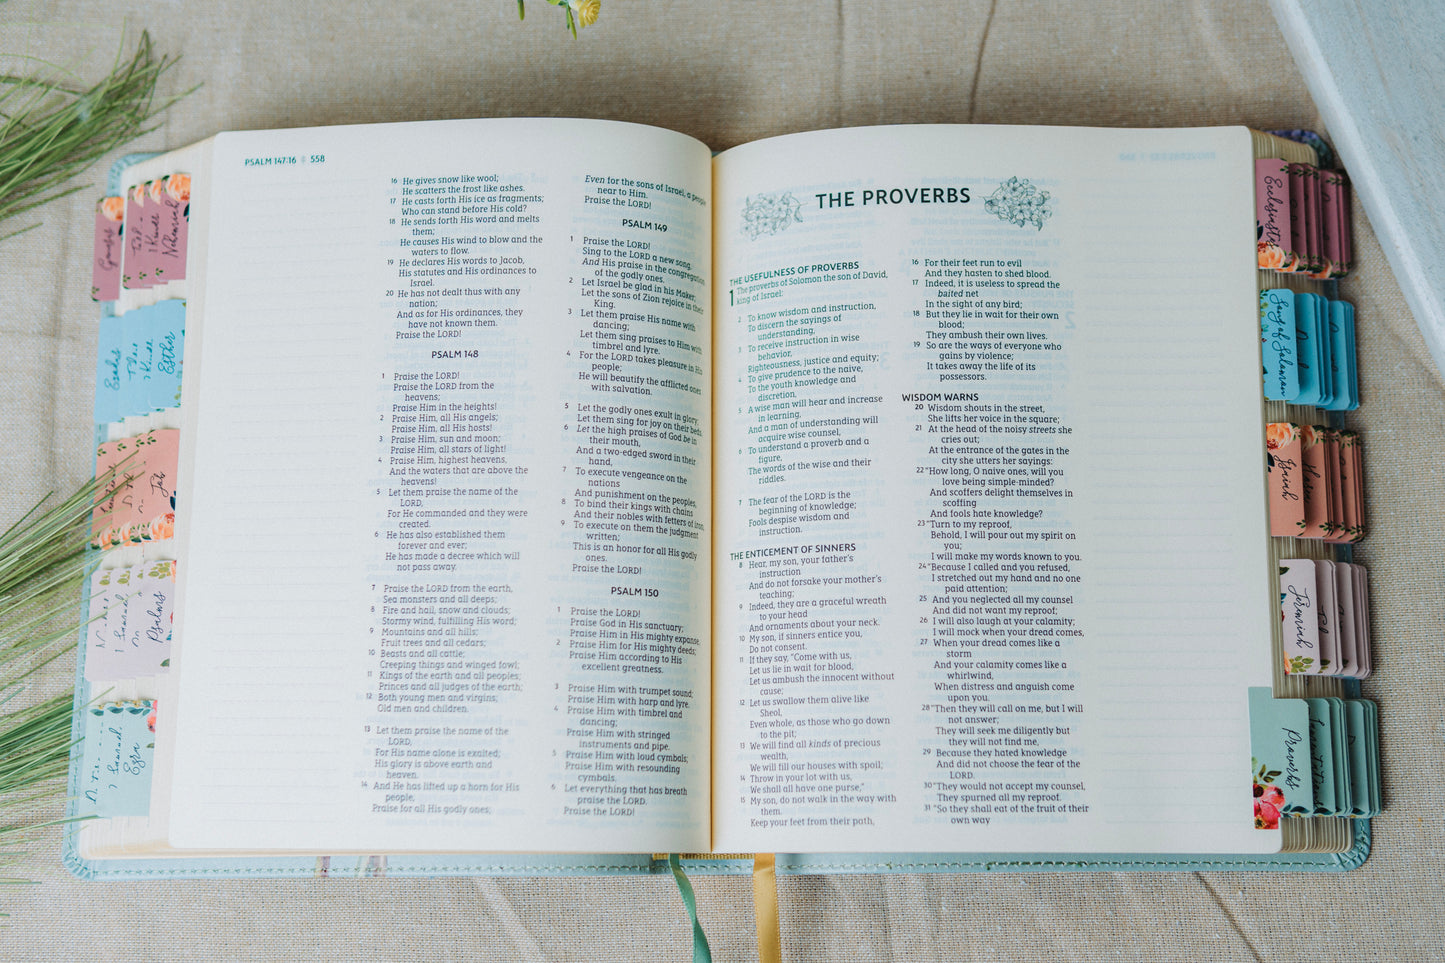 PSALM 147:16 558
16 He gives snow like wool;
He scatters the frost like ashes.
17 He casts forth His ice as fragments;
Who can stand before His cold?
18 He sends forth His word and melts
them;
He causes His wind to blow and the
waters to flow.
19 He declares His words to Jacob,
His statutes and His ordinances to
Israel.
20 He has not dealt thus with any
nation;
And as for His ordinances, they
have not known them.
Praise the LORD!
PSALM 148
1 Praise the LORD!
Praise the LORD from the
heavens;
Praise Him in the heights!
2 Praise Him, all His angels;
Praise Him, all His hosts!
3 Praise Him, sun and moon;
Praise Him, all stars of light!
4 Praise Him, highest heavens,
And the waters that are above the
heavens!
5 Let them praise the name of the
LORD,
For He commanded and they were
created.
6 He has also established them
forever and ever;
He has made a decree which will
not pass away.
7 Praise the LORD from the earth,
Sea monsters and all deeps;
8 Fire and hail, snow and clouds;
Stormy wind, fulfilling His word;
9 Mountains and all hills;
Fruit trees and all cedars;
10 Beasts and all cattle;
Creeping things and winged fowl;
11 Kings of the earth and all peoples;
Princes and all judges of the earth;
12 Both young men and virgins;
Old men and children.
13 Let them praise the name of the
LORD,
For His name alone is exalted;
His glory is above earth and
heaven.
14 And He has lifted up a horn for His
people,
Praise for all His godly ones;
Even for the sons of Israel, a people
near to Him.
Praise the LORD!
PSALM 149
1 Praise the LORD!
Sing to the LORD a new song,
And His praise in the congregation
of the godly ones.
2 Let Israel be glad in his Maker;
Let the sons of Zion rejoice in their
King.
3 Let them praise His name with
dancing;
Let them sing praises to Him with
timbrel and lyre.
4 For the LORD takes pleasure in His
people;
He will beautify the afflicted ones
with salvation.
5 Let the godly ones exult in glory;
Let them sing for joy on their beds.
6 Let the high praises of God be in
their mouth,
And a two-edged sword in their
hand,
7 To execute vengeance on the
nations
And punishment on the peoples,
8 To bind their kings with chains
And their nobles with fetters of iron,
9 To execute on them the judgment
written;
This is an honor for all His godly
ones.
Praise the LORD!
PSALM 150
1 Praise the LORD!
Praise God in His sanctuary;
Praise Him in His mighty expanse.
2 Praise Him for His mighty deeds;
Praise Him according to His
excellent greatness.
3 Praise Him with trumpet sound;
Praise Him with harp and lyre.
4 Praise Him with timbrel and
dancing;
Praise Him with stringed
instruments and pipe.
5 Praise Him with loud cymbals;
Praise Him with resounding
cymbals.
6 Let everything that has breath
praise the LORD.
Praise the LORD!
THE PROVERBS
THE USEFULNESS OF PROVERBS
1 The proverbs of Solomon the son of David,
king of Israel:
2 To know wisdom and instruction,
To discern the sayings of
understanding,
3 To receive instruction in wise
behavior,
Righteousness, justice and equity;
4 To give prudence to the naive,
To the youth knowledge and
discretion,
5 A wise man will hear and increase
in learning,
And a man of understanding will
acquire wise counsel,
6 To understand a proverb and a
figure,
The words of the wise and their
riddles.
7 The fear of the LORD is the
beginning of knowledge;
Fools despise wisdom and
instruction.
THE ENTICEMENT OF SINNERS
8 Hear, my son, your father's
instruction
And do not forsake your mother's
teaching;
9 Indeed, they are a graceful wreath
to your head
And ornaments about your neck.
10 My son, if sinners entice you,
Do not consent.
11 If they say, "Come with us,
Let us lie in wait for blood,
Let us ambush the innocent without
cause;
12 Let us swallow them alive like
Sheol,
Even whole, as those who go down
to the pit;
13 We will find all kinds of precious
wealth,
We will fill our houses with spoil;
14 Throw in your lot with us,
We shall all have one purse,"
15 My son, do not walk in the way with
them.
Keep your feet from their path,
16 For their feet run to evil
And they hasten to shed blood.
17 Indeed, it is useless to spread the
baited net
In the sight of any bird;
18 But they lie in wait for their own
blood;
They ambush their own lives.
19 So are the ways of everyone who
gains by violence;
It takes away the life of its
possessors.
WISDOM WARNS
20 Wisdom shouts in the street,
She lifts her voice in the square;
21 At the head of the noisy streets she
cries out;
At the entrance of the gates in the
city she utters her sayings:
22 "How long, O naive ones, will you
love being simple-minded?
And scoffers delight themselves in
scoffing
And fools hate knowledge?
23 "Turn to my reproof,
Behold, I will pour out my spirit on
you;
I will make my words known to you.
24 "Because I called and you refused,
I stretched out my hand and no one
paid attention;
25 And you neglected all my counsel
And did not want my reproof;
26 I will also laugh at your calamity;
I will mock when your dread comes,
27 When your dread comes like a
storm
And your calamity comes like a
whirlwind,
When distress and anguish come
upon you.
28 "Then they will call on me, but I will
not answer;
They will seek me diligently but
they will not find me,
29 Because they hated knowledge
And did not choose the fear of the
LORD.
30 "They would not accept my counsel,
They spurned all my reproof.
31 "So they shall eat of the fruit of their
own way
Genesis
Nehemiah
Esther
Job
Psalms
Ezra
Ecclesiastes
Song of Solomon
Isaiah
Jeremiah
Proverbs